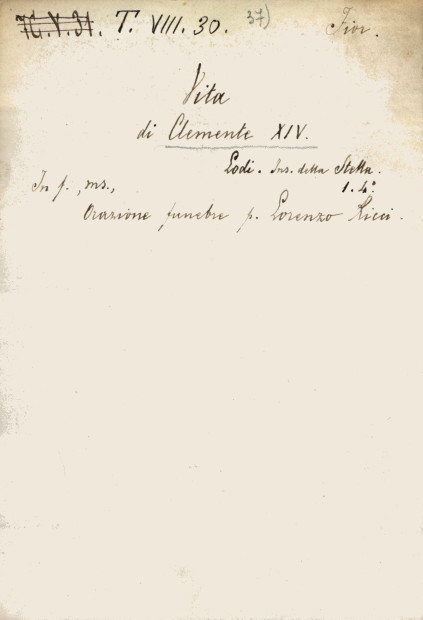 7G.V.31. T. VIII. 30. 37) Fior.
Vita
di Clemente XIV.
Lodi. Ins. della Stella.
1. 4°
In f., ms.,
Orazione funebre p. Lorenzo Ricci.